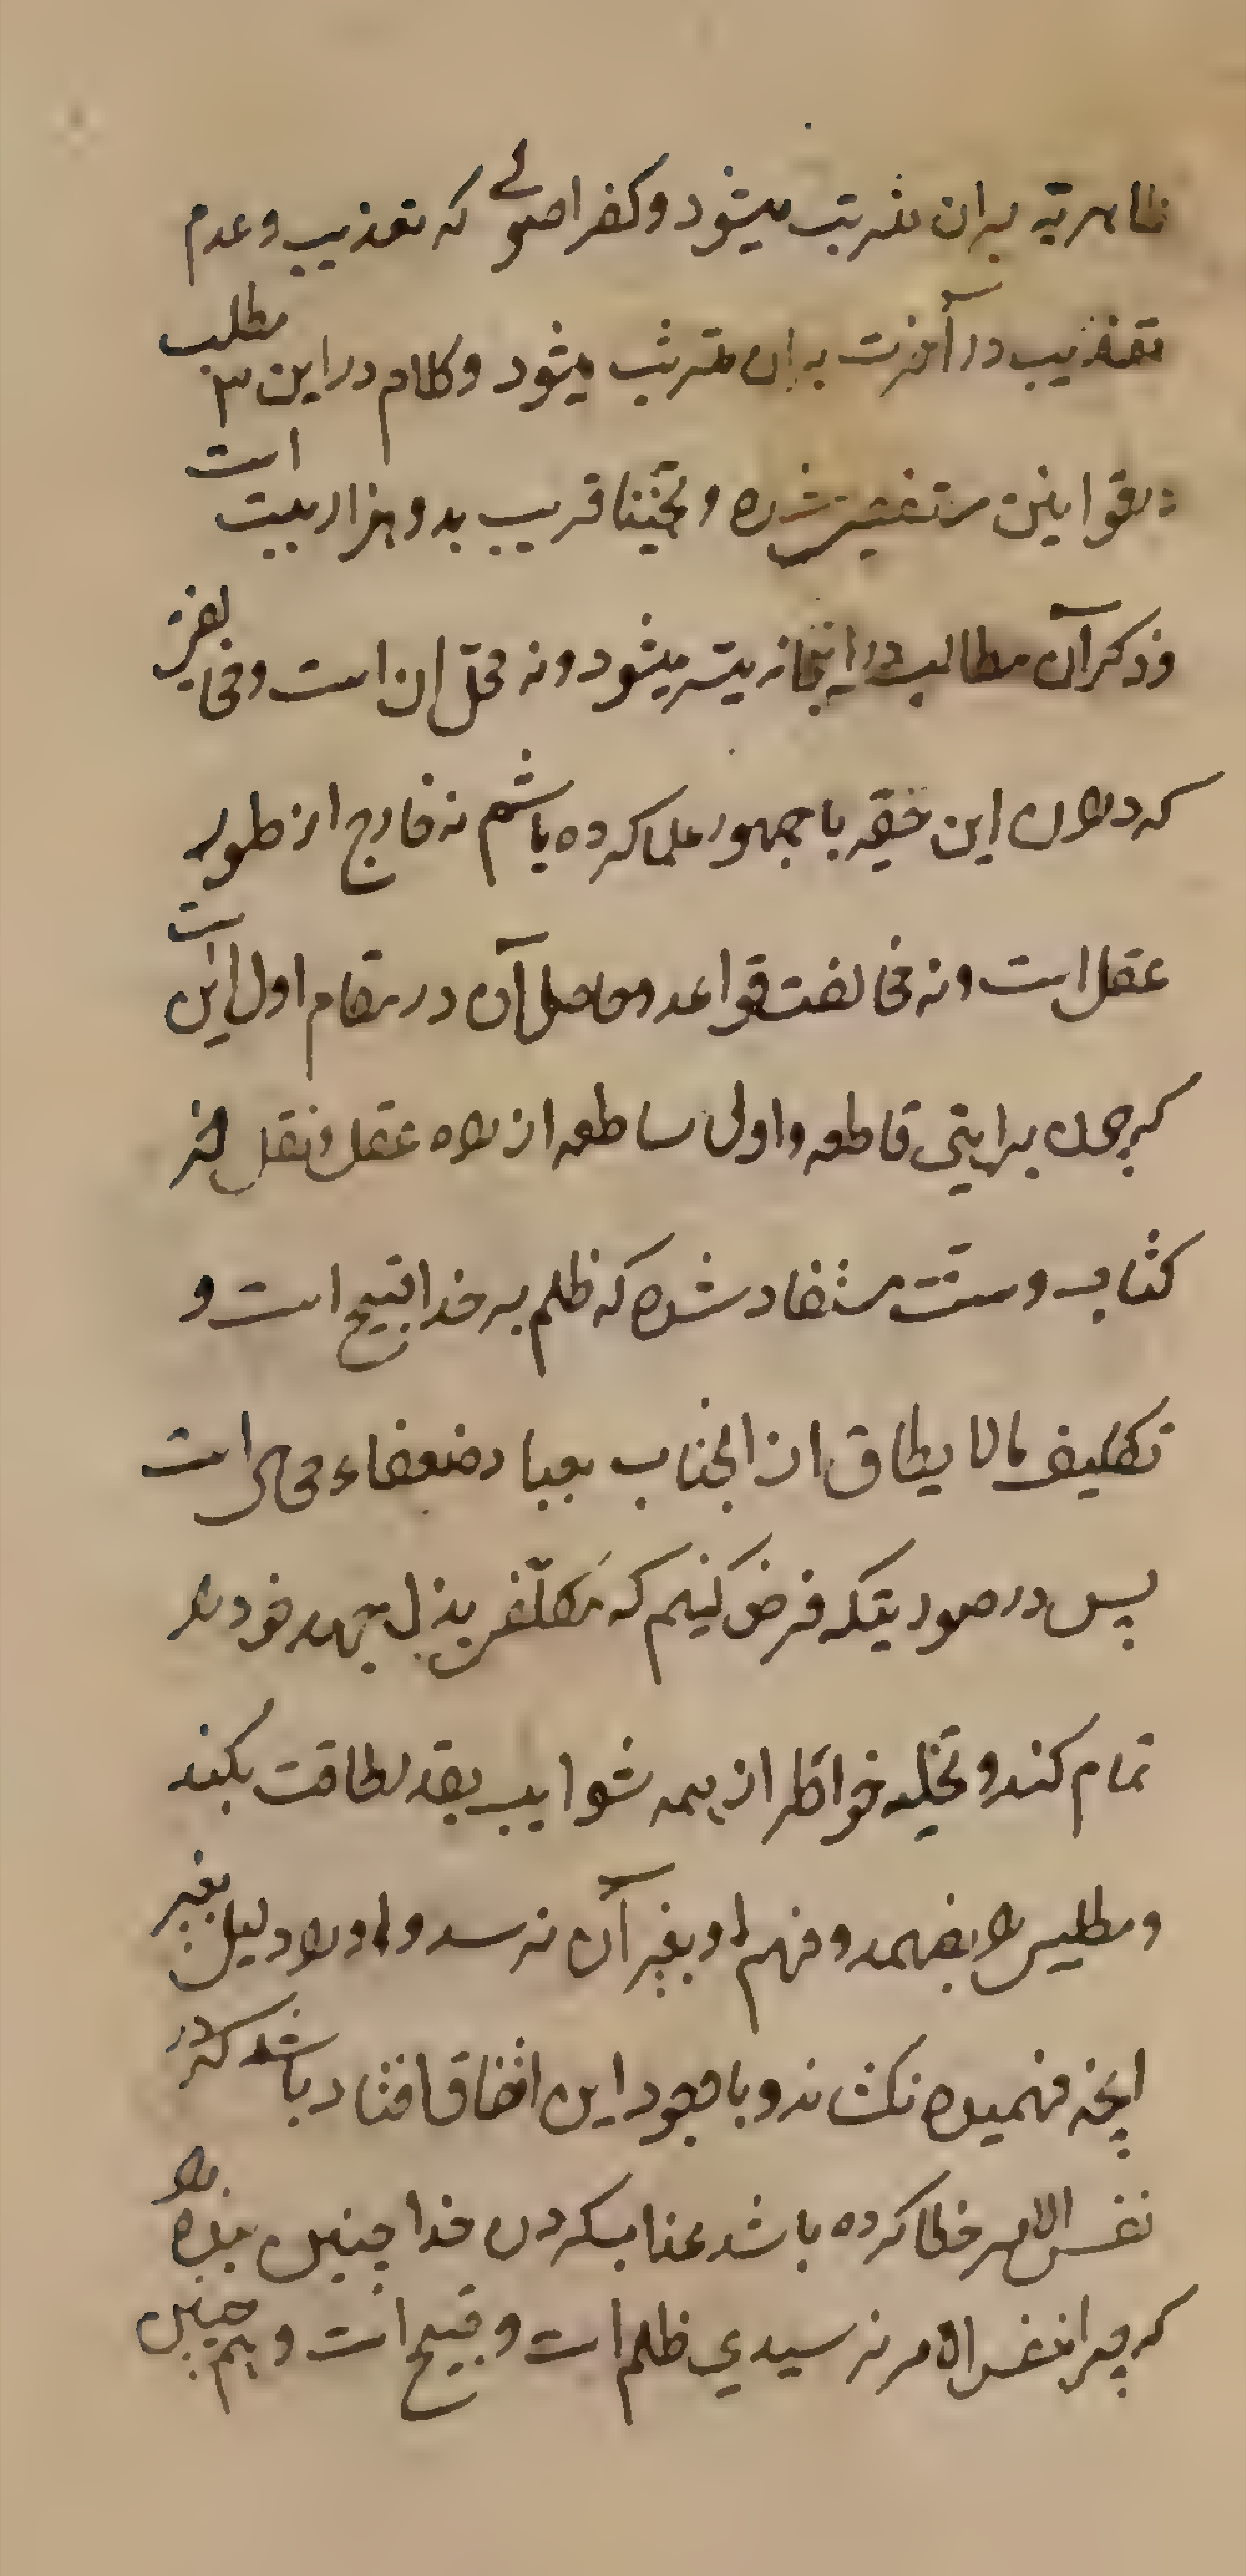 ظاهریه بران مترتب میشود و کفر اصولی که تعذیب و عدم
تعذیب در آخرت بران مترتب میشود و کلام در این ۳ مطلب
بقوانین مستفیض شده و تخمینا قریب بدو هزار بیت است
و ذکر آن مطالب در اینجا نه میسر میشود و نه محل ان است و
که در ان این حقیر با جمهور علما کرده باشم نه خارج از طور
عقل است و نه مخالفت قواعد و حاصل آن در مقام اول این است
که چون براهین قاطعه و اولی ساطعه از راه عقل و نقل
کتاب و سنت مستفاد شده که ظلم بر خدا قبیح است و
تکلیف مالا یطاق از انجناب بعباد ضعفاء محال است
پس در صورتیکه فرض کنیم که مکلّف بذل جهد خود را
تمام کند و تخلیه خواطر از همه شوایب بقدر طاقت بکند
و مطلبی را بفهمد و فهم او بغیر آن نرسد و او را دلیل بغیر
انچه فهمیده نکشاند و با وجود این اتفاق افتاد باشد که در
نفس الامر خطا کرده باشد عذاب کردن خدا چنین بنده را
که چرا بنفس الامر نرسیدی ظلم است و قبیح است و هم چنین